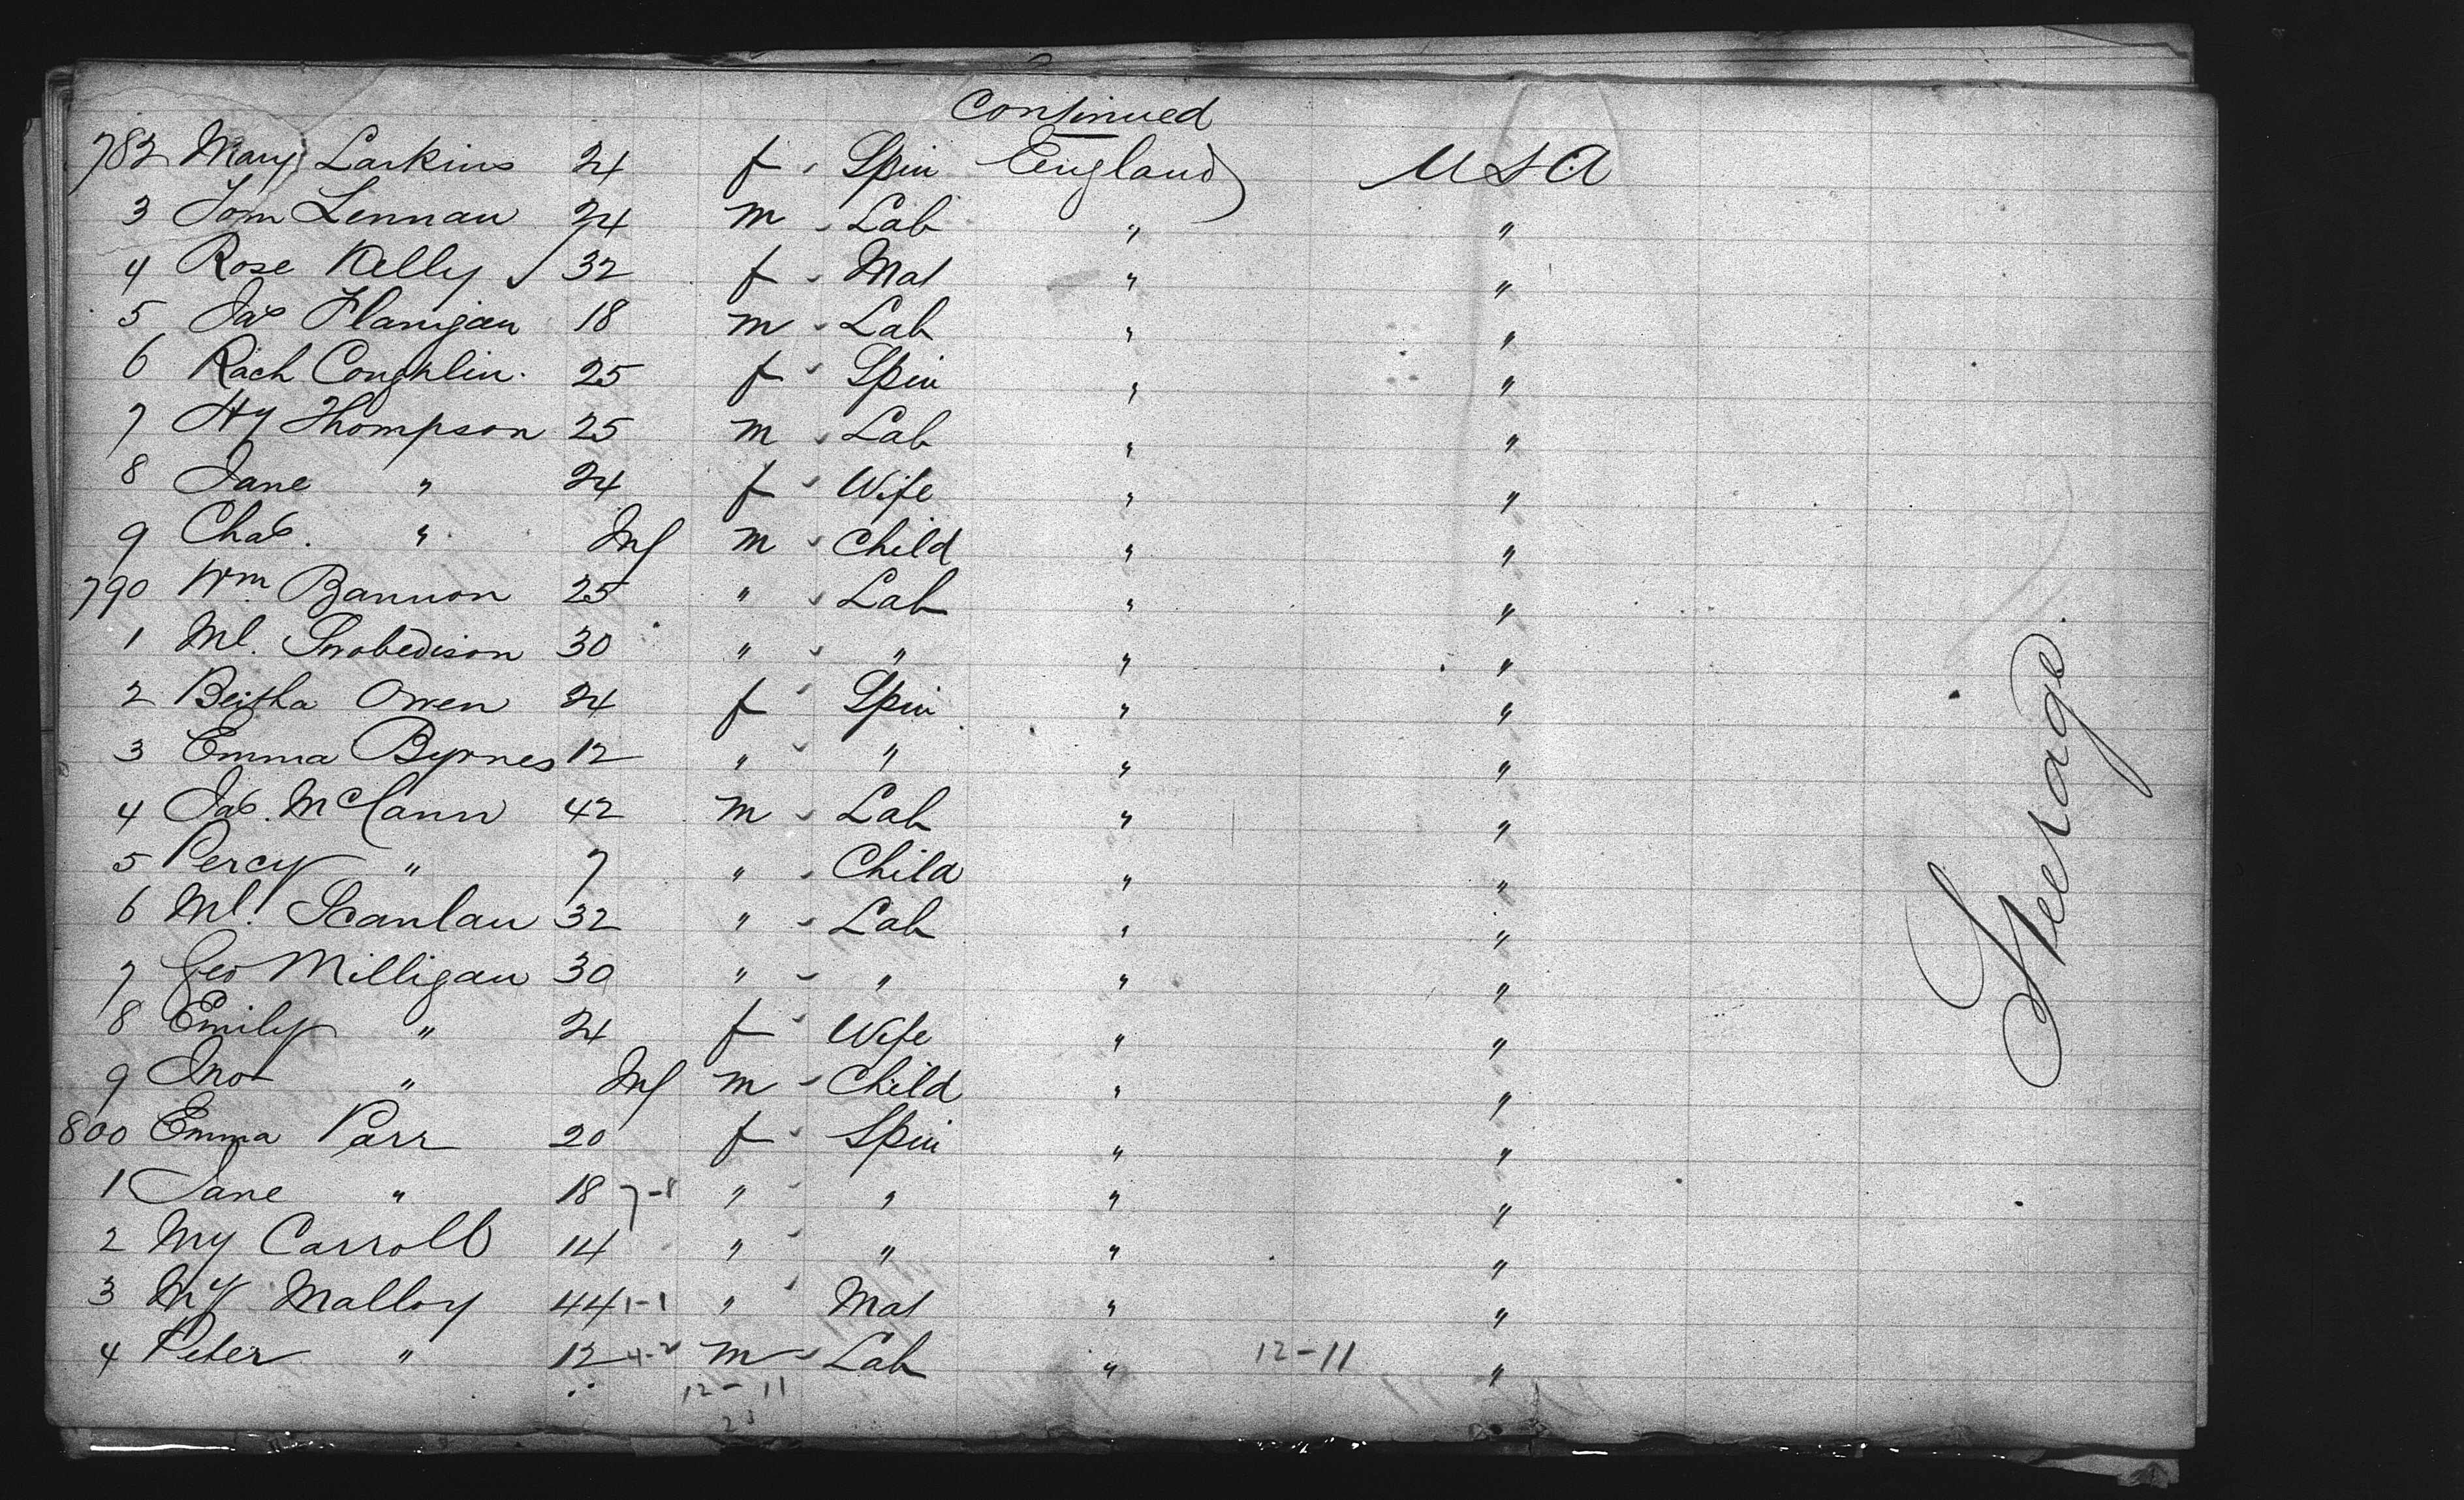 Continued
782 Mary Larkins 24 f Spin England USA
3 Tom Lennan 24 m Lab " "
4 Rose Kelly 32 f Mat " "
5 Jas Flanigan 18 m Lab " "
6 Rach Coughlin 25 f Spin " "
7 Hy Thompson 25 m Lab " "
8 Jane " 24 f Wife " "
9 Chas. " Inf m Child " "
790 Wm Bannon 25 " Lab " "
1 Ml. 30 " " " "
2 Bertha Owen 24 f Spin " "
3 Emma Byrnes 12 " " " "
4 Jas. McCann 42 m Lab " "
5 Percy " 7 " Child " "
6 Ml. Scanlan 32 " Lab " "
7 Geo Milligan 30 " " " "
8 Emily " 24 f Wife " "
9 Jno " Inf m Child " "
800 Emma Parr 20 f Spin " "
1 Jane " 18 7-8 " " " "
2 My Carroll 14 " " " "
3 My Malloy 44 1-1 " Mat " "
4 Peter " 12 4-2 m Lab " 12-11 "
12-11
23
Steerage.